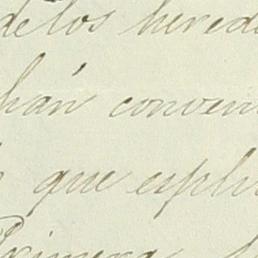 de los hered
han conven
que expli
Primera